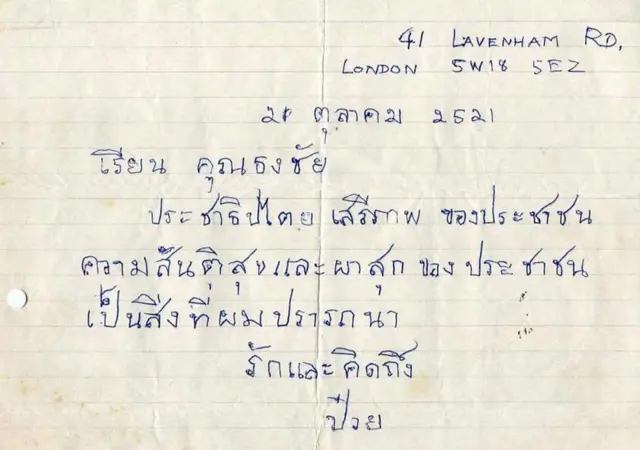 41 LAVENHAM RD,
LONDON SW18 5EZ
21 ตุลาคม 2521
เรียน คุณธงชัย
ประชาธิปไตย เสรีภาพ ของประชาชน
ความสันติสุขและผาสุก ของ ประชาชน
เป็นสิ่งที่ผมปรารถนา
รักและคิดถึง
ป๋วย